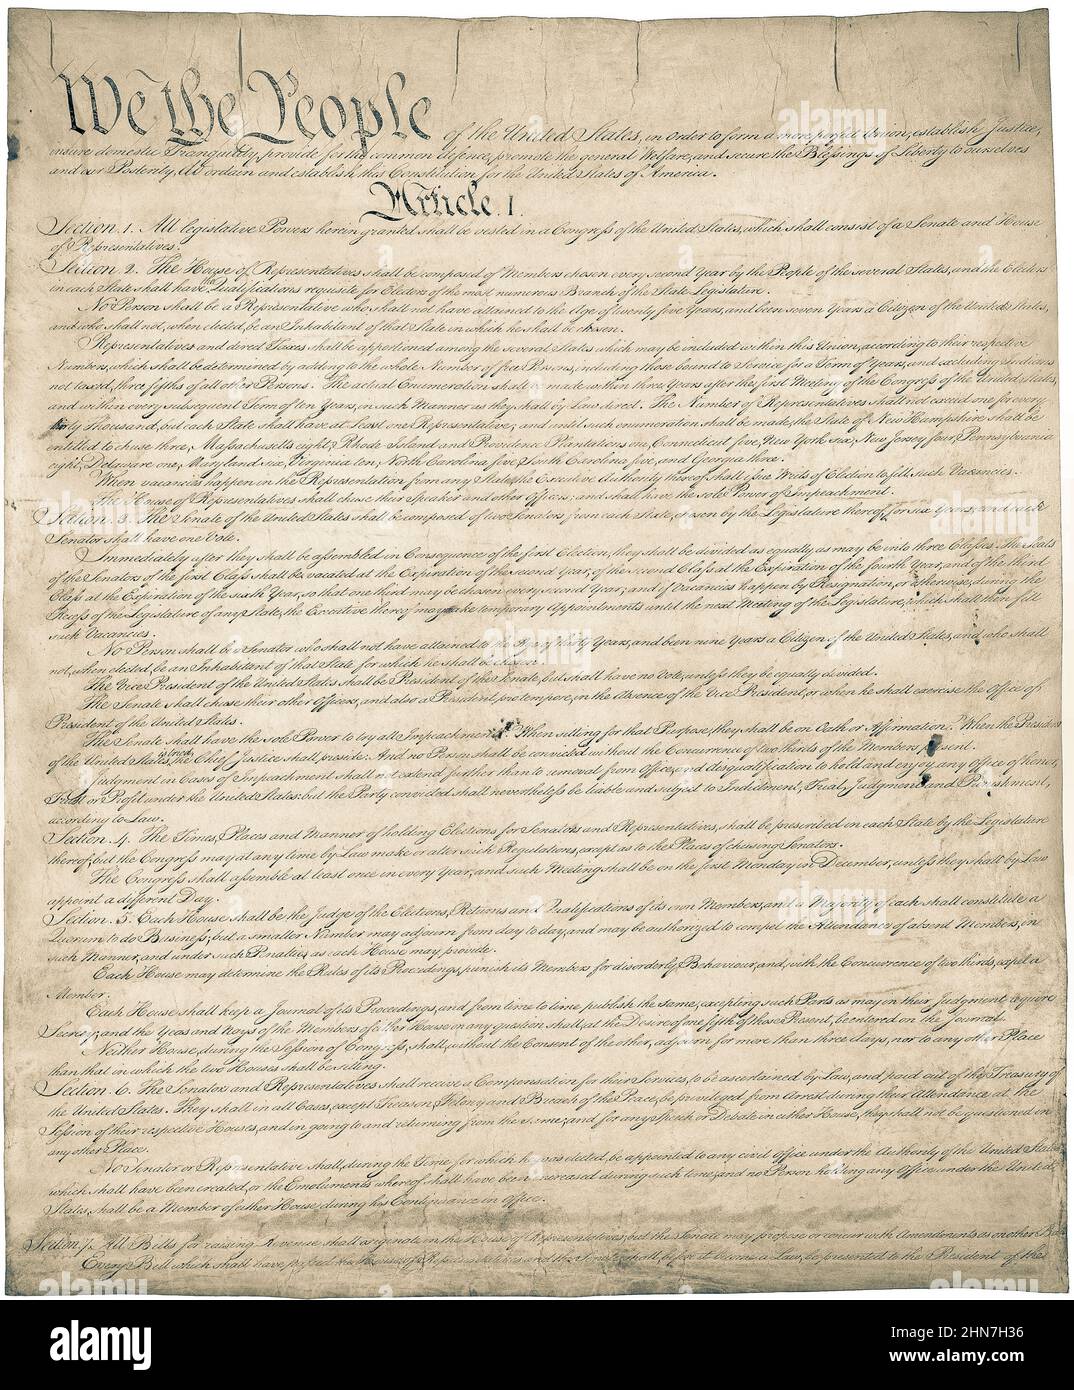 We the People of the United States, in Order to form a more perfect Union, establish Justice,
insure domestic Tranquility, provide for the common defence, promote the general Welfare, and secure the Blessings of Liberty to ourselves
and our Posterity, do ordain and establish this Constitution for the United States of America.
Article. I.
Section. 1. All legislative Powers herein granted shall be vested in a Congress of the United States, which shall consist of a Senate and House
of Representatives.
Section. 2. The House of Representatives shall be composed of Members chosen every second Year by the People of the several States, and the Electors
in each State shall have the Qualifications requisite for Electors of the most numerous Branch of the State Legislature.
No Person shall be a Representative who shall not have attained to the Age of twenty five Years, and been seven Years a Citizen of the United States,
and who shall not, when elected, be an Inhabitant of that State in which he shall be chosen.
Representatives and direct Taxes shall be apportioned among the several States which may be included within this Union, according to their respective
Numbers, which shall be determined by adding to the whole Number of free Persons, including those bound to Service for a Term of Years, and excluding Indians
not taxed, three fifths of all other Persons. The actual Enumeration shall be made within three Years after the first Meeting of the Congress of the United States,
and within every subsequent Term of ten Years, in such Manner as they shall by Law direct. The Number of Representatives shall not exceed one for every
thirty Thousand, but each State shall have at Least one Representative; and until such enumeration shall be made, the State of New Hampshire shall be
entitled to chuse three, Massachusetts eight, Rhode Island and Providence Plantations one, Connecticut five, New York six, New Jersey four, Pennsylvania
eight, Delaware one, Maryland six, Virginia ten, North Carolina five, South Carolina five, and Georgia three.
When vacancies happen in the Representation from any State, the Executive Authority thereof shall issue Writs of Election to fill such Vacancies.
The House of Representatives shall chuse their Speaker and other Officers; and shall have the sole Power of Impeachment.
Section. 3. The Senate of the United States shall be composed of two Senators from each State, chosen by the Legislature thereof, for six Years; and each
Senator shall have one Vote.
Immediately after they shall be assembled in Consequence of the first Election, they shall be divided as equally as may be into three Classes. The Seats
of the Senators of the first Class shall be vacated at the Expiration of the second Year, of the second Class at the Expiration of the fourth Year, and of the third
Class at the Expiration of the sixth Year, so that one third may be chosen every second Year; and if Vacancies happen by Resignation, or otherwise, during the
Recess of the Legislature of any State, the Executive thereof may make temporary Appointments until the next Meeting of the Legislature, which shall then fill
such Vacancies.
No Person shall be a Senator who shall not have attained to the Age of thirty Years, and been nine Years a Citizen of the United States, and who shall
not, when elected, be an Inhabitant of that State for which he shall be chosen.
The Vice President of the United States shall be President of the Senate, but shall have no Vote, unless they be equally divided.
The Senate shall chuse their other Officers, and also a President pro tempore, in the Absence of the Vice President, or when he shall exercise the Office of
President of the United States.
The Senate shall have the sole Power to try all Impeachments. When sitting for that Purpose, they shall be on Oath or Affirmation. When the President
of the United States is tried, the Chief Justice shall preside: And no Person shall be convicted without the Concurrence of two thirds of the Members present.
Judgment in Cases of Impeachment shall not extend further than to removal from Office, and disqualification to hold and enjoy any Office of honor,
Trust or Profit under the United States: but the Party convicted shall nevertheless be liable and subject to Indictment, Trial, Judgment and Punishment,
according to Law.
Section. 4. The Times, Places and Manner of holding Elections for Senators and Representatives, shall be prescribed in each State by the Legislature
thereof; but the Congress may at any time by Law make or alter such Regulations, except as to the Places of chusing Senators.
The Congress shall assemble at least once in every Year, and such Meeting shall be on the first Monday in December, unless they shall by Law
appoint a different Day.
Section. 5. Each House shall be the Judge of the Elections, Returns and Qualifications of its own Members, and a Majority of each shall constitute a
Quorum to do Business; but a smaller Number may adjourn from day to day, and may be authorized to compel the Attendance of absent Members, in
such Manner, and under such Penalties as each House may provide.
Each House may determine the Rules of its Proceedings, punish its Members for disorderly Behaviour, and, with the Concurrence of two thirds, expel a
Member.
Each House shall keep a Journal of its Proceedings, and from time to time publish the same, excepting such Parts as may in their Judgment require
Secrecy; and the Yeas and Nays of the Members of either House on any question shall, at the Desire of one fifth of those Present, be entered on the Journal.
Neither House, during the Session of Congress, shall, without the Consent of the other, adjourn for more than three days, nor to any other Place
than that in which the two Houses shall be sitting.
Section. 6. The Senators and Representatives shall receive a Compensation for their Services, to be ascertained by Law, and paid out of the Treasury of
the United States. They shall in all Cases, except Treason, Felony and Breach of the Peace, be privileged from Arrest during their Attendance at the
Session of their respective Houses, and in going to and returning from the same; and for any Speech or Debate in either House, they shall not be questioned in
any other Place.
No Senator or Representative shall, during the Time for which he was elected, be appointed to any civil Office under the Authority of the United States,
which shall have been created, or the Emoluments whereof shall have been encreased during such time; and no Person holding any Office under the United
States, shall be a Member of either House during his Continuance in Office.
Section. 7. All Bills for raising Revenue shall originate in the House of Representatives; but the Senate may propose or concur with Amendments as on other Bills.
Every Bill which shall have passed the House of Representatives and the Senate, shall, before it become a Law, be presented to the President of the
alamy
Image ID: 2HN7H36
www.alamy.com